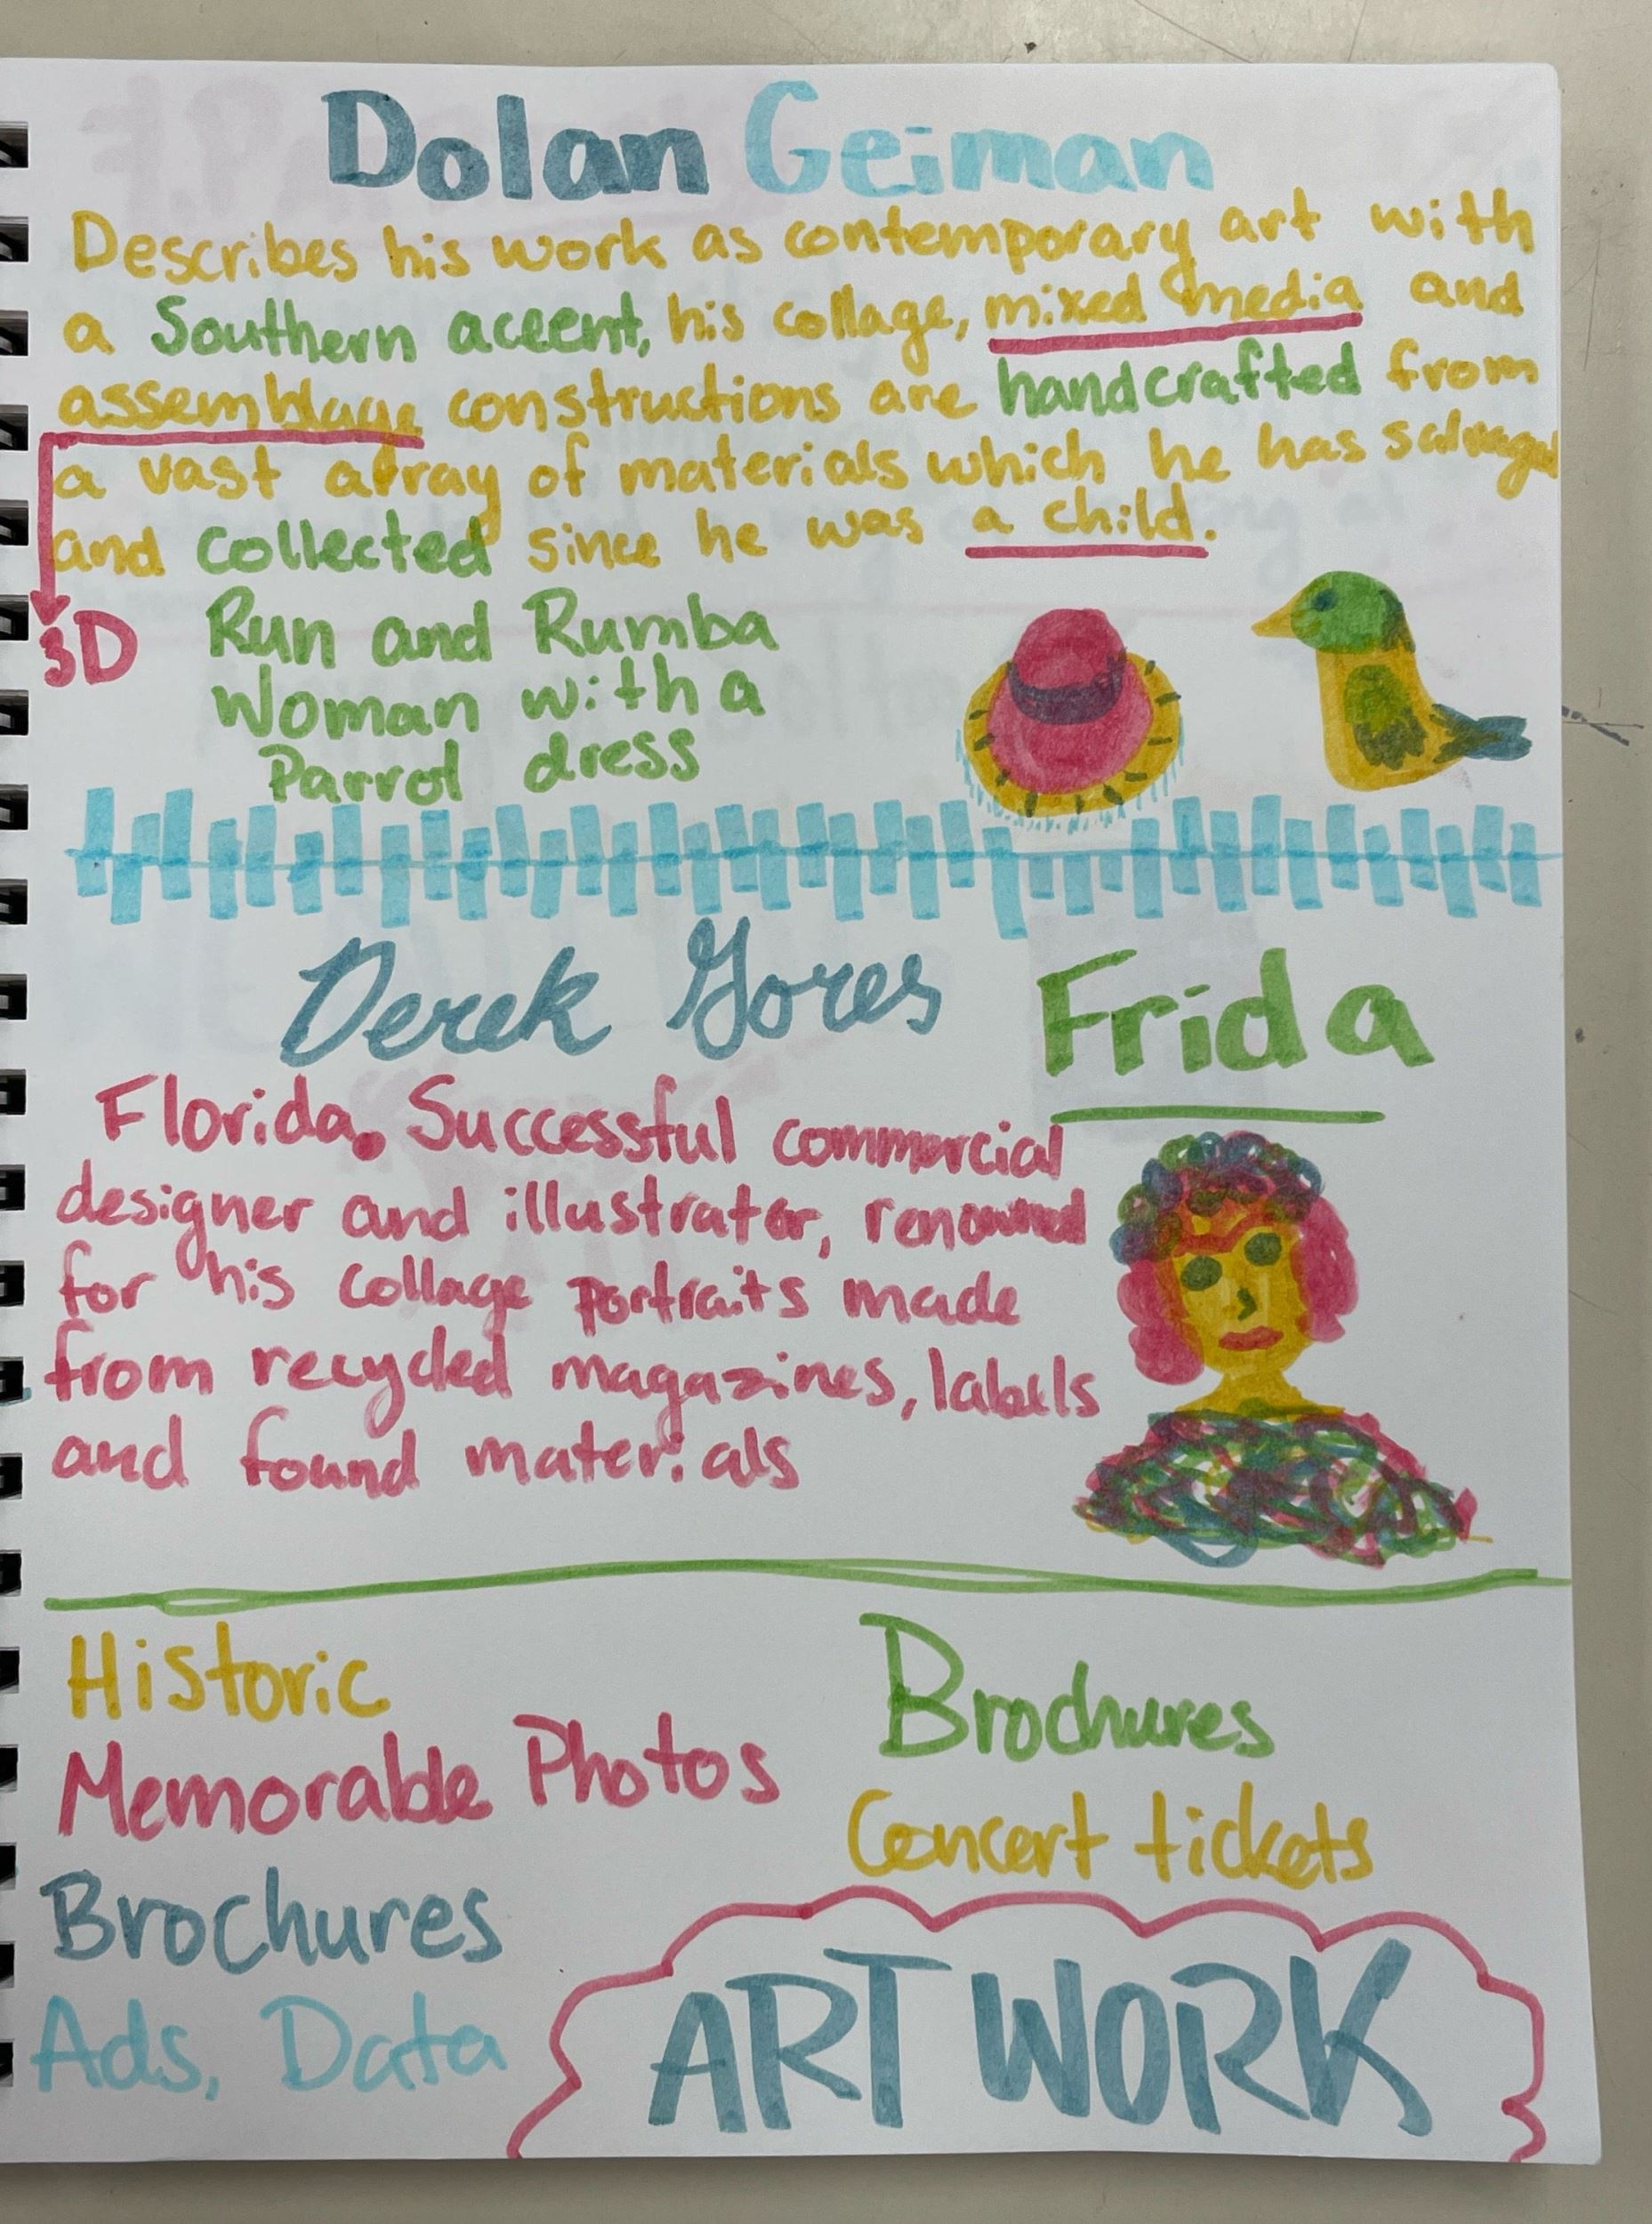 Dolan Geiman
Describes his work as contemporary art with
a Southern accent, his collage, mixed media and
assemblage constructions are handcrafted from
a vast array of materials which he has
and collected since he was a child.
3D
Run and Rumba
Woman with a
Parrot dress
Derek Gores
Frida
Florida. Successful commercial
designer and illustrator, renowned
for his collage portraits made
from recycled magazines, labels
and found materials
Historic
Memorable Photos
Brochures
Ads, Data
Brochures
Concert tickets
ART WORK